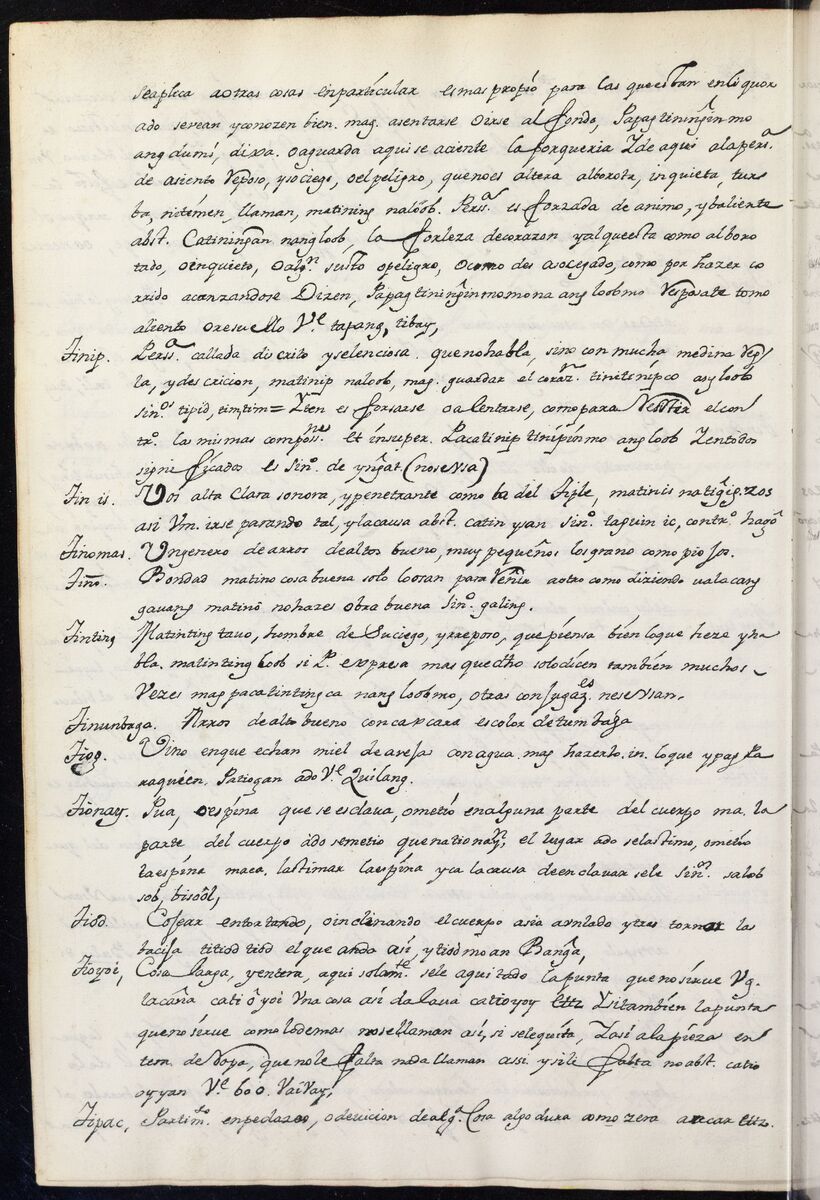 seaplica aotras cosas enparticular esmas propio para las queestan enliquor
ado serean yconozen bien. mag. asentarse oirse al fondo, Papagtiningin mo
ang dumi, dexa. oaguarda aqui se aciente la porqueria Zde aqui alapers.ª
de asiento Reposo, ysociego, oelpeligro, quenoes altera alborota, inquieta, tur=
ba, nitemen, llaman, matining naloob. Perss.ª es forzada de animo, ybaliente
abst. Catiningan nangloob, la forleza decorazon yalqueesta como alboro
tado, oinquieto, oalg.n susto opeligro, ocomo des asocegado, como por hazer co
rrido acanzandose Dizen, Papagtininginmomona ang loobmo Resposate tomo
aliento oresuello V.e tapang, tibay,
Tinip. Perss.ª callada discrito yselenciosa. quenohabla, sino con mucha medina Regl
la, ydes cricion, matinip naloob, mag. guardar el coraz.n tinitinipco ang loob
sin.os tipid, timtim = Yten es forsarse oalentarse, comopara Resistir elcon
tr.o las mismas composs.nes Et insuper. Pacatinip tinipinmo ang loob Zentodos
signi ficados es Sin.o de yngat (nosevsa)
Tinis. Vos alta Clara sonora, ypenetrante como la del Tiple, matinis natigig. Zos
asi Vm. irse parando tal, ylacausa abst. catin ysan sin.o taguin ic, contr.o hagõ
Tinomas. Vngenero dearros dealtos bueno, muy pequeños losgrano como piojos.
Tiño. Bondad matino cosa buena solo loosan para Reñir aotro como diziendo ualacang
gavang matinõ nohazes obra buena Sin.o galing.
Tinting Matinting tauo, hombre de Suciego, yrreposo, quepiensa bien loque heze yha
bla. matinting loob si P. expresa mas quedho solodicen tambien muchos
Vezes magpacatintingca nang loobmo, otras conjugaz.es nesevsan.
Tinunbaga. Arros dealto bueno concascara escolor detumbaga
Tiog. Vino enque echan miel deavejas conagua. mag hazerlo. in. loque ypag Pa
raquien. Patiogan ado V.e Quilang.
Tionay. Pua, oespina que se esclava, ometio enalguna parte del cuerpo ma. la
parte del cuerpo ado semetio quenationay, el lugar ado selastimo, ometio
laespina maca, lastimar laespina yca lacausa deenclavar sele Sin.o salob
sob, bisool,
Tiod. Cojear entortando, oinclinando elcuerpo asia avnlado ytras tornar las
bacija titiod tiod elque anda así, ytiodmoan Banga,
Tioyoi, Cosa larga, yentera, aqui solam.te sele aquitado lapunta quenosirve Vg.
lacaña cati oyoi Vna cosa asi dalaua catioyoy ettz Zsitambien lapunta
quenosirve comolodemas nosellaman asi, si selequita, Zasi alapieza en
tera de Ropa, quenole falta nada llaman assi. ysile falta noabst. catio
oyyan V.e boo. Vaivay,
Tipac, Partim.to enpedazo, odevicion dealg.ª Cosa algodura como zera azucar ettz.